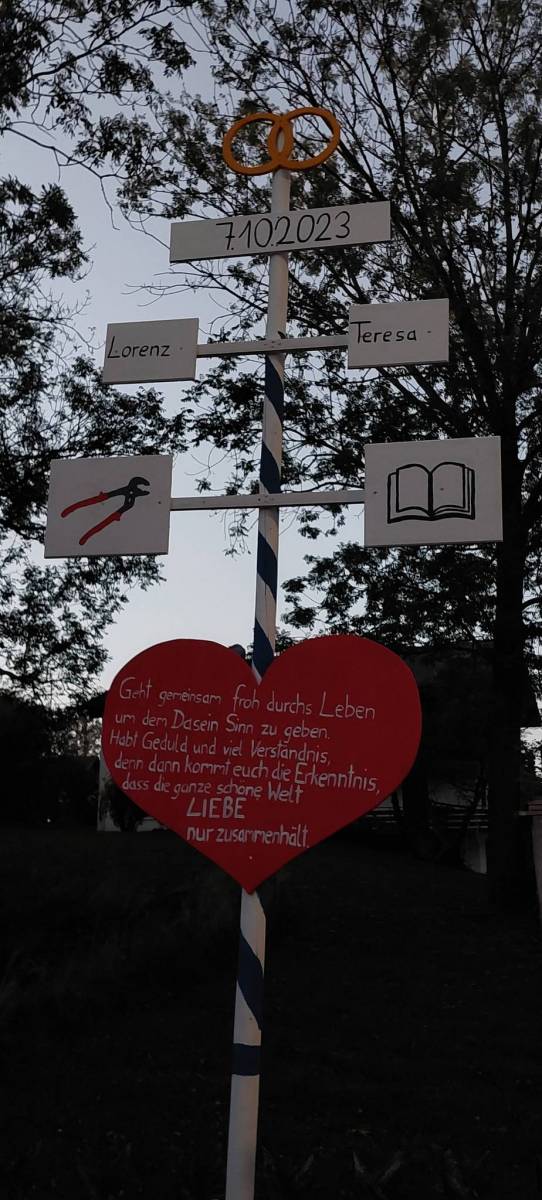 7.10.2023
Lorenz
Teresa
Geht gemeinsam froh durchs Leben
um dem Dasein Sinn zu geben.
Habt Geduld und viel Verständnis,
denn dann kommt euch die Erkenntnis,
dass die ganze schöne Welt
LIEBE
nur zusammenhält.